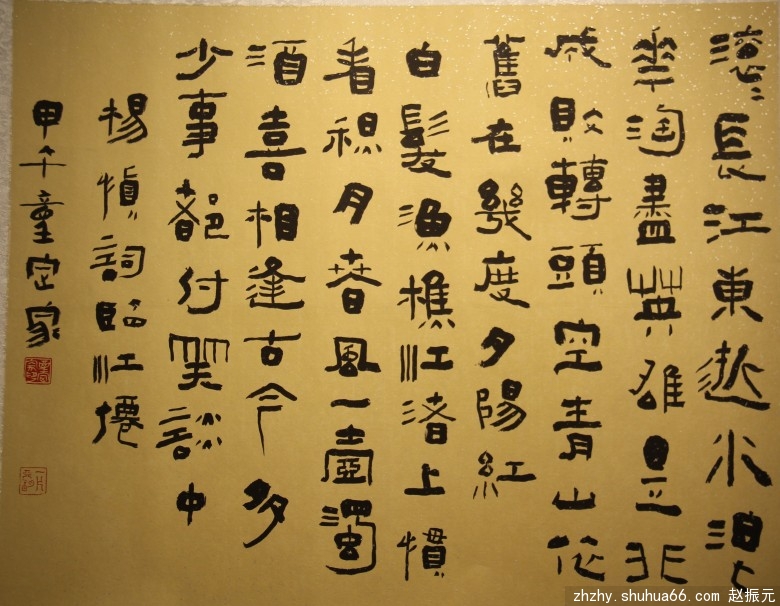 滚〻長江東逝水浪
華淘盡英雄是非
成敗轉頭空青山依
舊在幾度夕陽紅
白髮漁樵江渚上慣
看秋月春風一壺濁
酒喜相逢古今多
少事都付笑談中
楊慎詞臨江僊
甲午童定家
zhzhy.shuhua66.com 赵振元